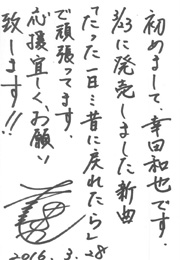 初めまして、幸田和也です。
3/23に発売しました新曲
「たった一日…昔に戻れたら」
で頑張ってます。
応援宜しく、お願い
致します!!
2016.3.28